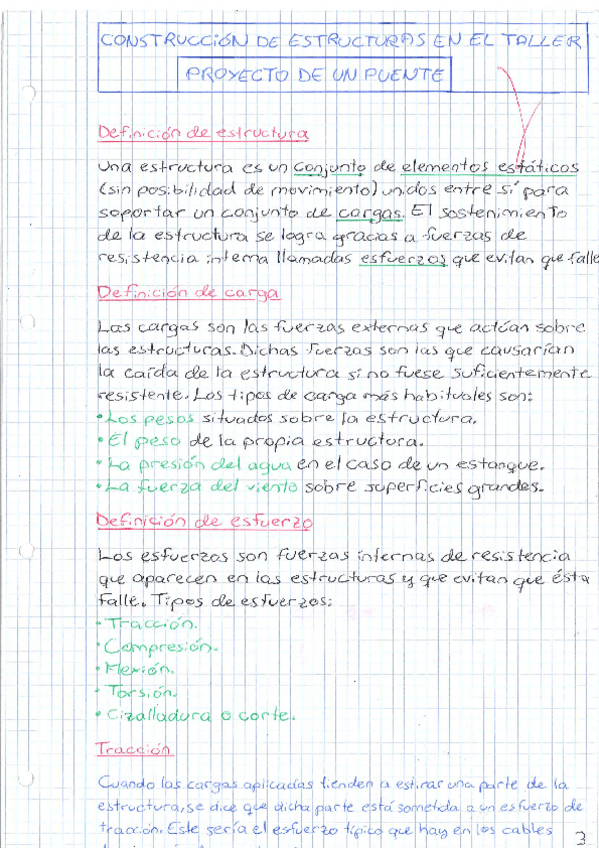 CONSTRUCCIÓN DE ESTRUCTURAS EN EL TALLER
PROYECTO DE UN PUENTE
Definición de estructura
Una estructura es un conjunto de elementos estáticos
(sin posibilidad de movimiento) unidos entre sí para
soportar un conjunto de cargas. El sostenimiento
de la estructura se logra gracias a fuerzas de
resistencia interna llamadas esfuerzos que evitan que falle
Definición de carga
Las cargas son las fuerzas externas que actúan sobre
las estructuras. Dichas fuerzas son las que causarían
la caída de la estructura si no fuese suficientemente
resistente. Los tipos de carga más habituales son:
• Los pesos situados sobre la estructura.
• El peso de la propia estructura.
• La presión del agua en el caso de un estanque.
• La fuerza del viento sobre superficies grandes.
Definición de esfuerzo
Los esfuerzos son fuerzas internas de resistencia
que aparecen en las estructuras y que evitan que ésta
falle. Tipos de esfuerzos:
• Tracción.
• Compresión.
• Flexión.
• Torsión.
• Cizalladura o corte.
Tracción
Cuando las cargas aplicadas tienden a estirar una parte de la
estructura, se dice que dicha parte está sometida a un esfuerzo de
tracción. Este sería el esfuerzo típico que hay en los cables
3